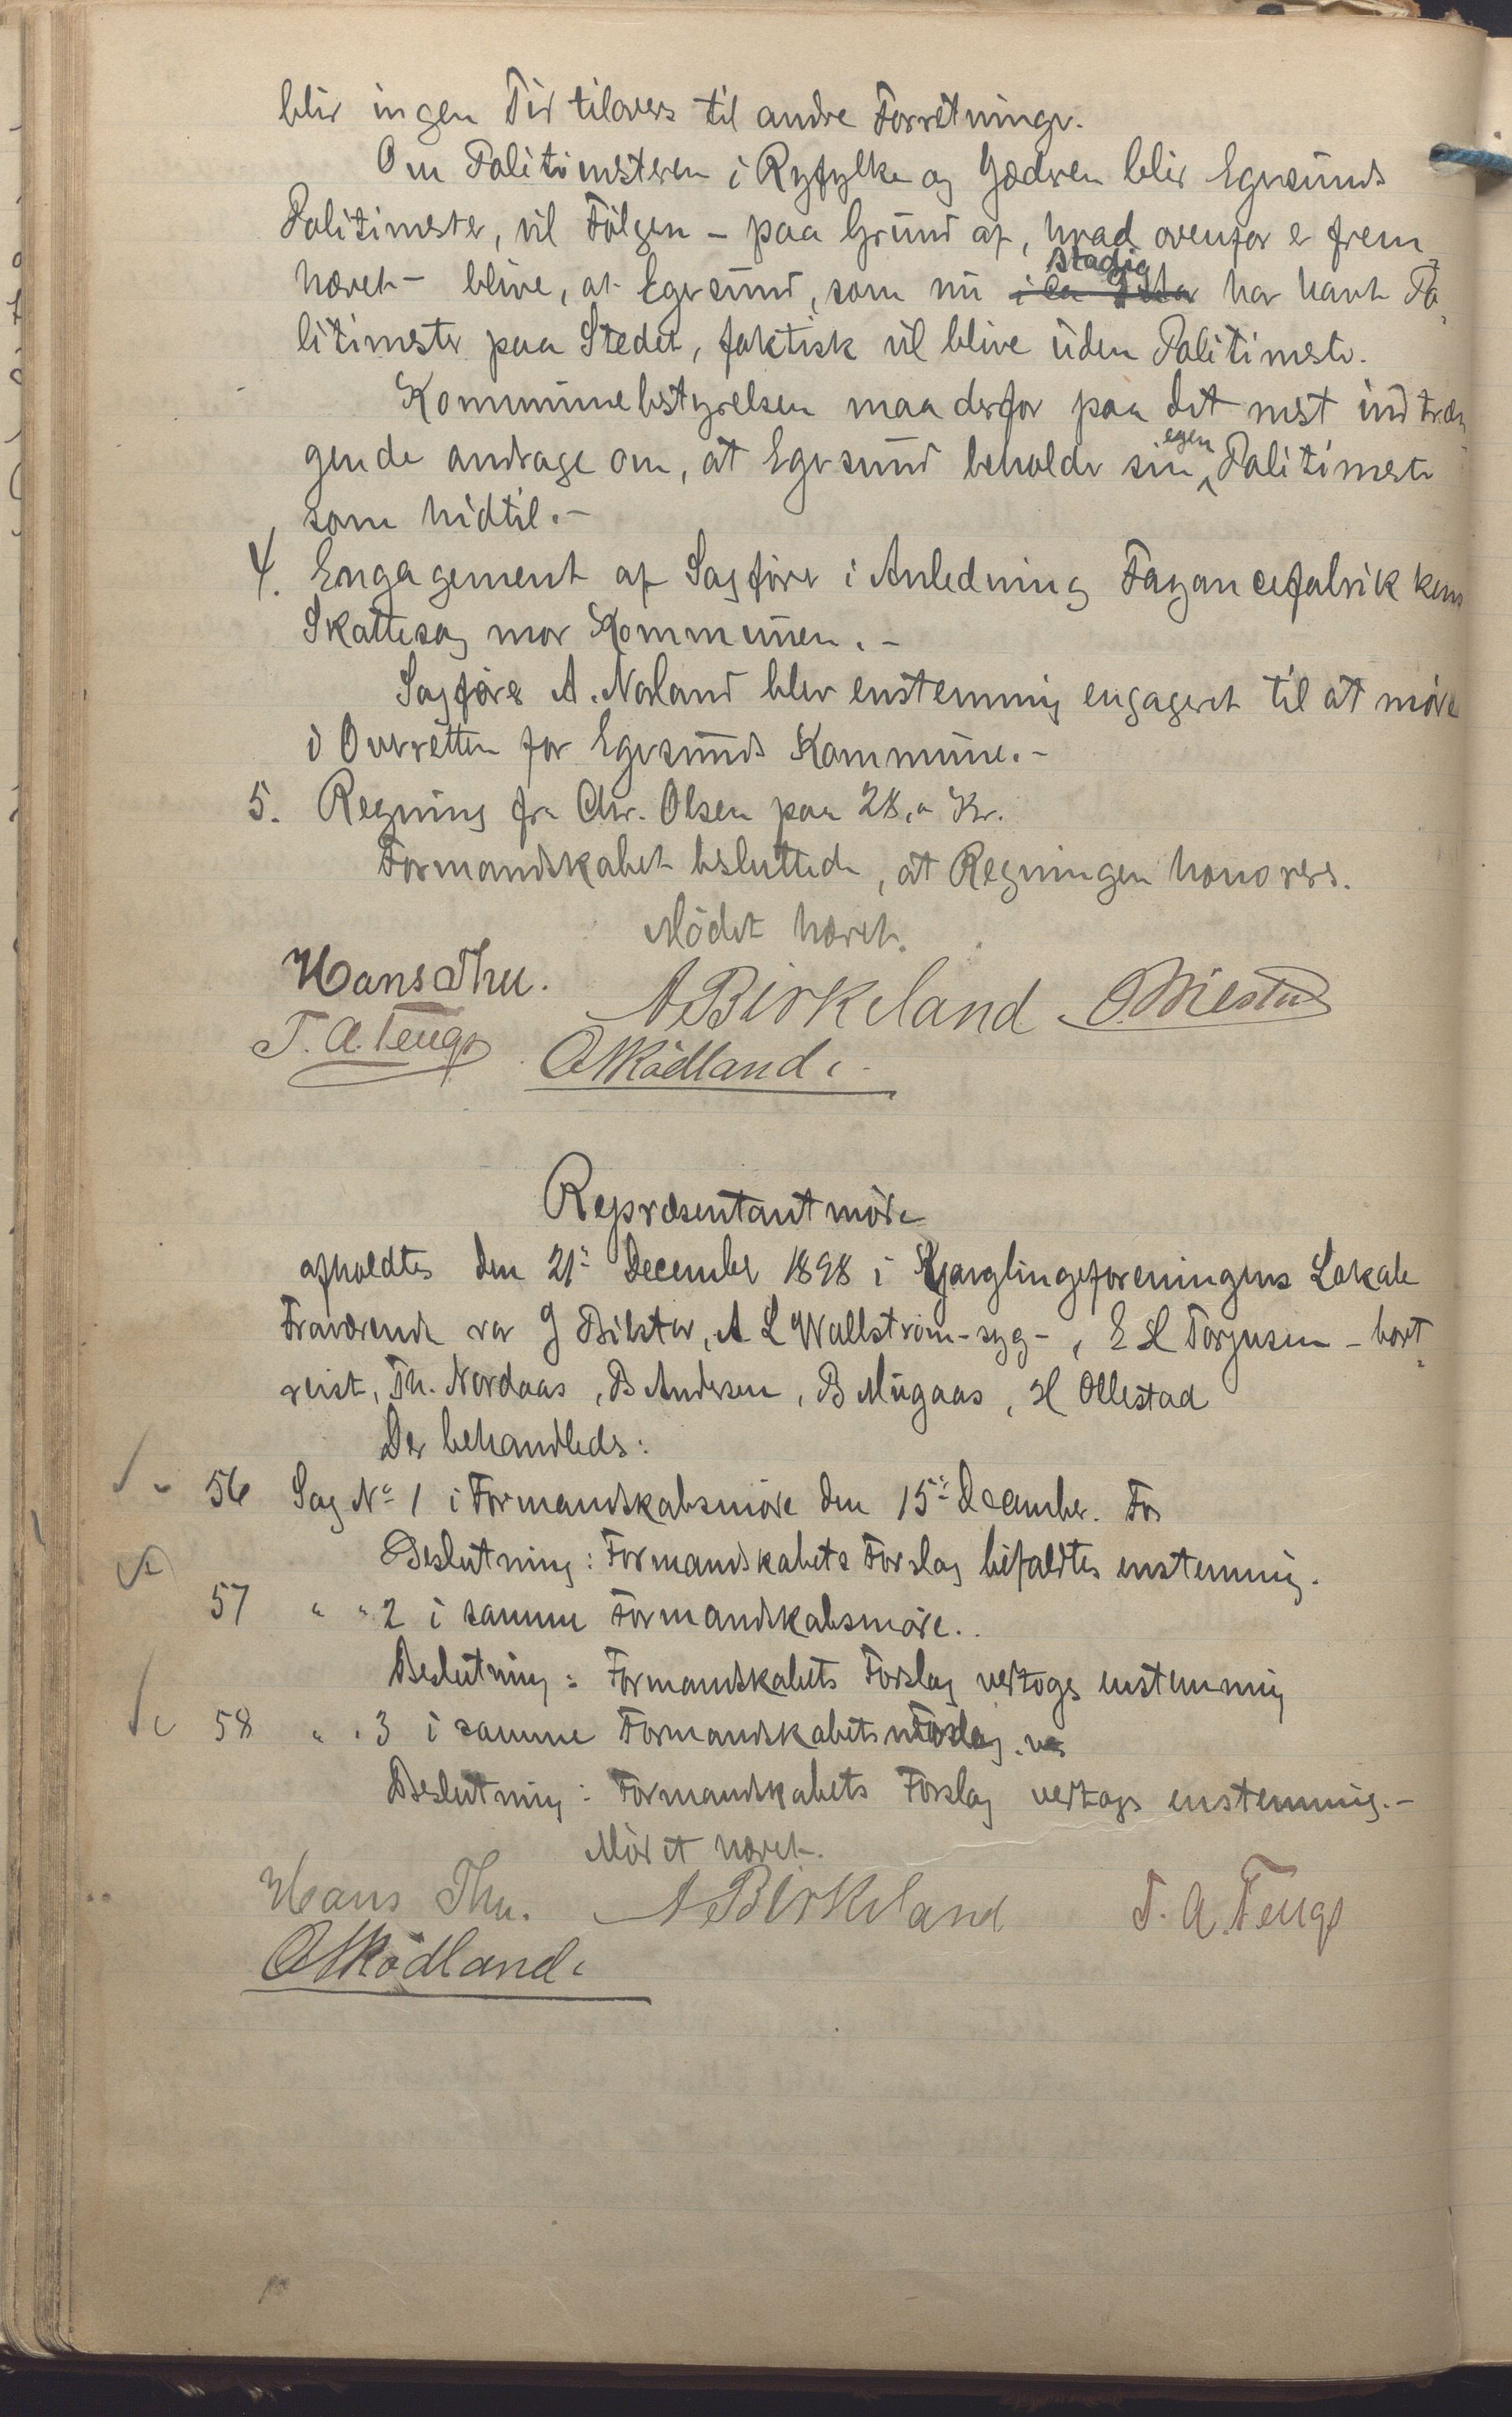 blir ingen Tid tilovers til andre Forretninger.
Om Politimesteren i Ryfylke og Jæderen blir Egersunds
Politimester, vil Følgen – paa Grund af, hvad ovenfor er frem-
hævet – blive, at Egersund, som nu stadig har havt Po-
litimester paa Stedet, faktisk vil blive uden Politimester.
Kommunebestyrelsen maa derfor paa det mest indtræn
gende andrage om, at Egersund beholder sin egen Politimester
som hidtil. –
4. Engagement af Sagfører i Anledning Fayancefabrikkens
Skattesag mod Kommunen. –
Sagfører A. Noland blev enstemmig engageret til at møde
i Overretten for Egersunds Kommune. –
5. Regning fra Chr. Olsen paa 28,- Kr.
Formandskabet besluttede, at Regningen honoreres.
Mødet hævet.
Hans Thu. A Birkeland
T. A. Tengs O M Rødland.
Repræsentantmøde
afholdtes den 21: December 1898 i Ynglingeforeningens Lokale
Fraværende var J Bilstad, A L Wallstrøm – syg – , E H Torjusen – bort-
reist, Th. Nordaas, B Andersen, B Mugaas, H Ollestad
Der behandledes:
56 Sag No 1 i Formandskabsmøde den 15: December. For
Beslutning: Formandskabets Forslag bifaldtes enstemmig.
57 " " 2 i samme Formandskabsmøde.
Beslutning: Formandskabets Forslag vedtoges enstemmig
58 " " 3 i samme Formandskabets Forslag
Beslutning: Formandskabets Forslag vedtoges enstemmig. –
Mødet hævet.
Hans Thu. A Birkeland T. A. Tengs
O M Rødland.